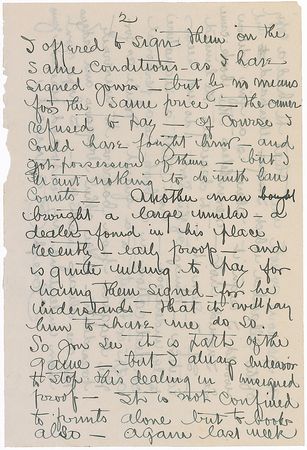 2
I offered to sign them on the
same conditions as I have
signed yours — but by no means
for the same price — the owner
refused to pay — of course I
could have fought him — and
got possession of them — but I
want nothing to do with law
Courts — Another man bought
brought a large number — a
dealer found in his place
recently — early proofs — and
is quite willing to pay for
having them signed — for he
understands — that it will pay
him to have me do so.
So you see it is part of the
game — but I always endeavor
to stop this dealing in unsigned
proof — It is not confined
to prints alone but to books
also — again last week